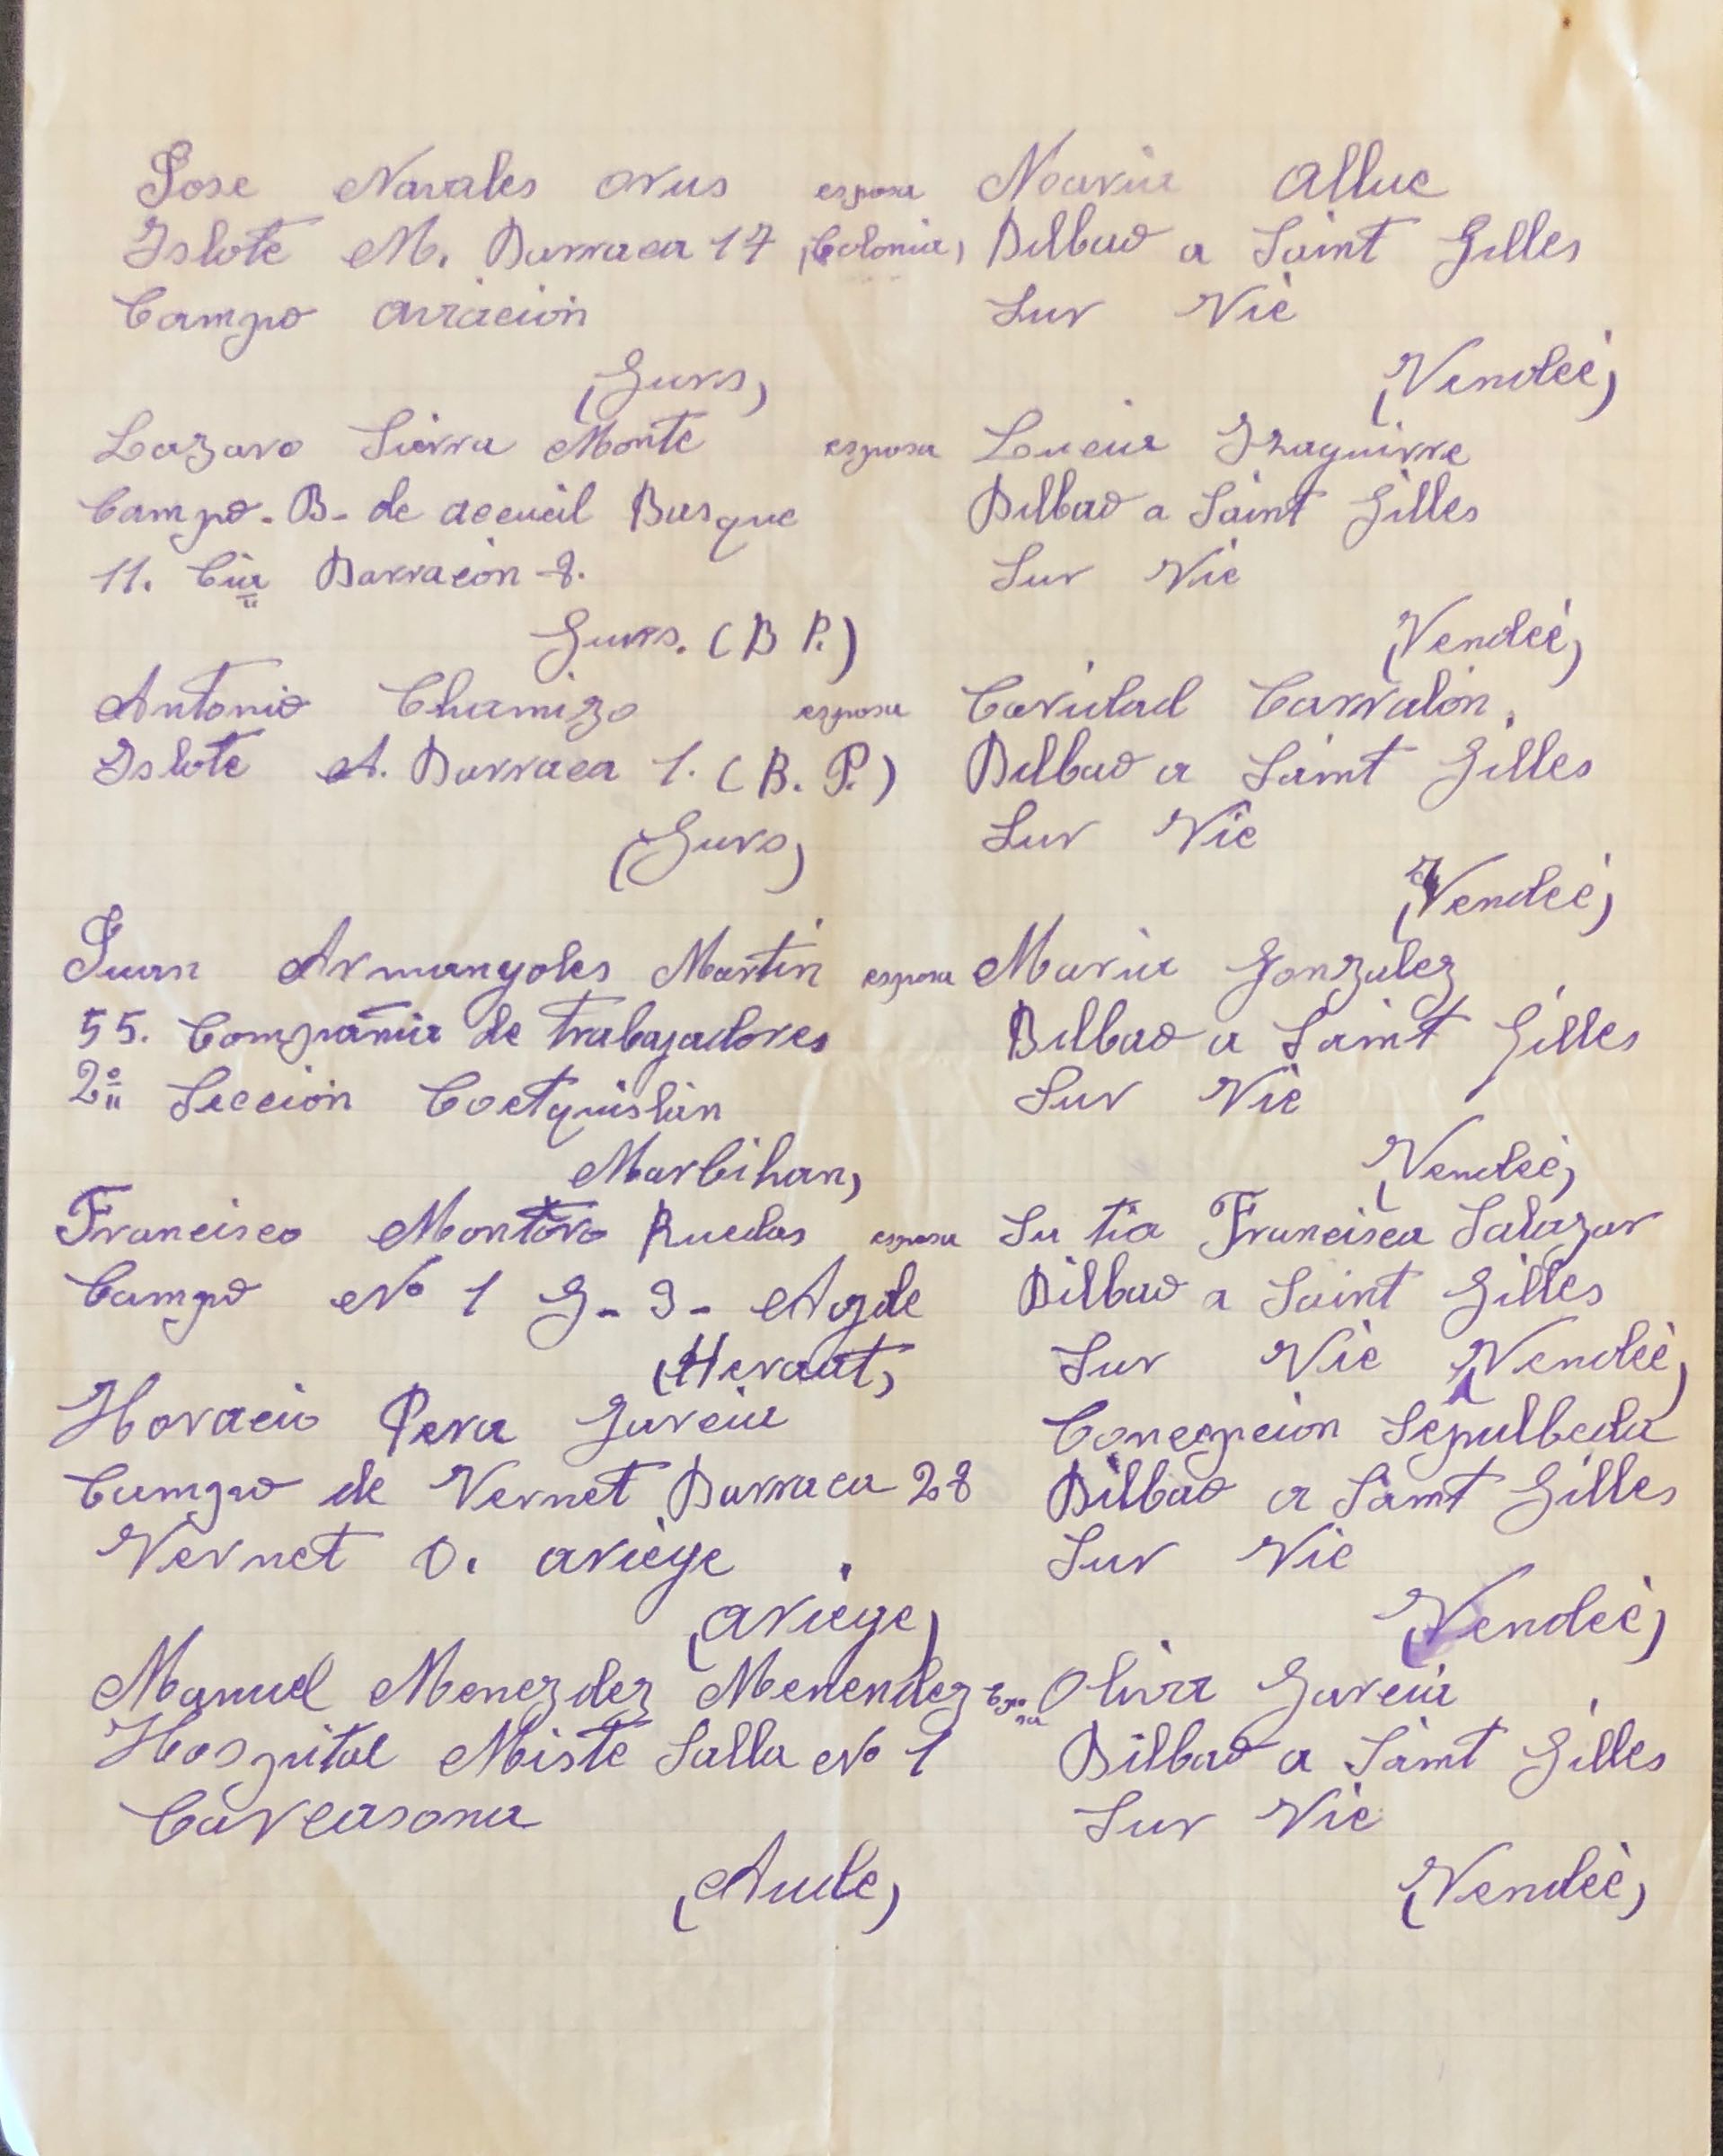 Jose Navales Orus esposa Maria Alluc
Islote M. Barraca 17 (Colonia) Bilbao a Saint Gilles
Campo Aviacion Sur Vie
(Gurs) (Vendeé)
Lazaro Sierra Monte esposa Lucia Izaguirre
Campo-B-de accueil Basque Bilbao a Saint Gilles
11. Cia Barracon-8. Sur Vie
Gurs. (B P.) (Vendeé)
Antonio Chamizo esposa Caridad Carralon.
Islote A. Barraca 1. (B. P.) Bilbao a Saint Gilles
(Gurs) Sur Vie
(Vendeé)
Juan Armangoles Martin esposa Maria Gonzalez
55. Compañia de trabajadores Bilbao a Saint Gilles
2ª Seccion Coetquislan Sur Vie
Marbihan) (Vendeé)
Francisco Montoro Ruedas esposa Su tia Francisca Salazar
Campo No 1 G-3-Agde Bilbao a Saint Gilles
(Heraut) Sur Vie (Vendeé)
Horacio Pera Garcia Concepcion Sepulbeda
Campo de Vernet Barraca 28 Bilbao a Saint Gilles
Vernet D. ariége Sur Vie
(ariége) (Vendeé)
Manuel Menezdez Menendez esposa Oliva Garcia
Hospital Miste Salla No 1 Bilbao a Saint Gilles
Carcasona Sur Vie
(Aude) (Vendeé)